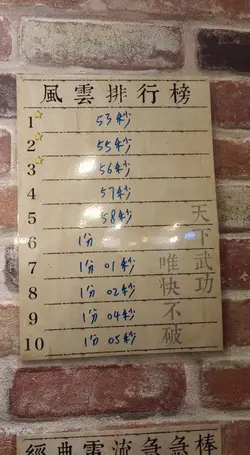 風雲排行榜
1 53秒
2 55秒
3 56秒
4 57秒
5 58秒
6 1分
7 1分01秒
8 1分02秒
9 1分04秒
10 1分05秒
天下武功
唯快不破
經典電流急急棒